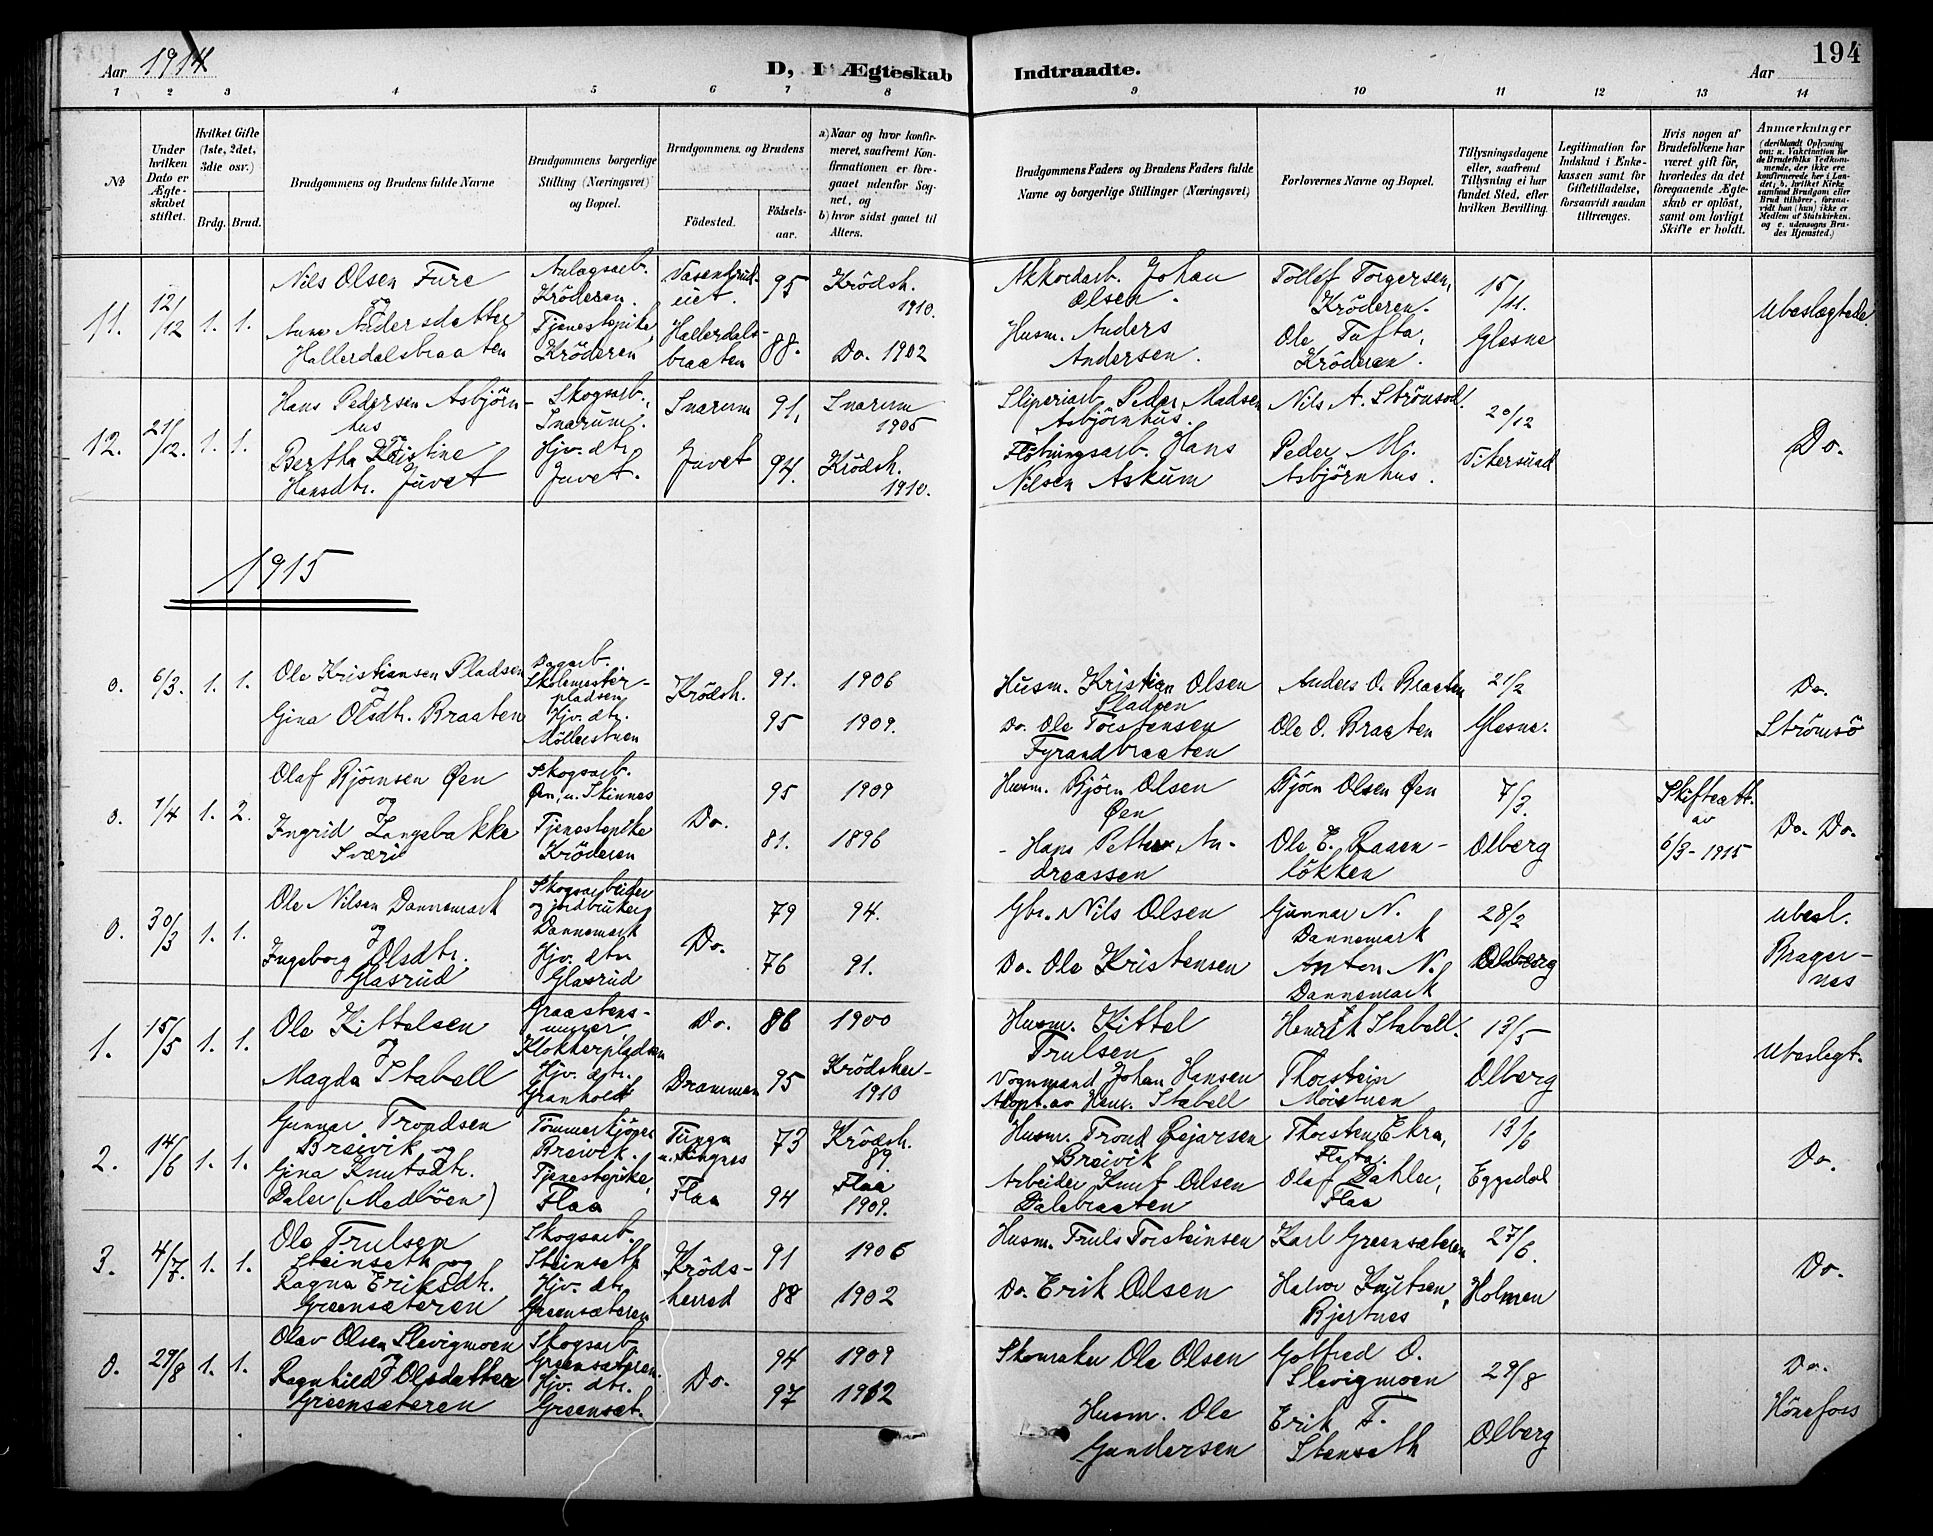 Aar 1914
D, I Ægteskab Indtraadte.
Aar
194
1 2 3 4 5 6 7 8 9 10 11 12 13 14
No
Under hvilken Dato er Ægteskabet stiftet.
Hvilket Gifte (1ste, 2det, 3die osv.)
Brdg. Brud.
Brudgommens og Brudens fulde Navne
Brudgommens borgerlige Stilling (Næringsvei) og Bopæl.
Brudgommens og Brudens
Födested.
Födselsaar.
a) Naar og hvor konfirmeret, saafremt Konfirmationen er foregaaet udenfor Sognet, og
b) hvor sidst gaaet til Alters.
Brudgommens Faders og Brudens Faders fulde Navne og borgerlige Stillinger (Næringsvei)
Forlovernes Navne og Bopæl.
Tillysningsdagene eller, saafremt Tillysning ei har fundet Sted, efter hvilken Bevilling.
Legitimation for Indskud i Enkekassen samt for Giftetilladelse, forsaavidt saadan tiltrænges.
Hvis nogen af Brudefolkene har været gift för, hvorledes da det foregaaende Ægteskab er oplöst, samt om lovligt Skifte er holdt.
Anmærkninger (deriblandt Oplysning om: a. Vakcination for de Brudefolks Vedkommende, der ikke ere konfirmerede her i Landet; b. hvilket Kirkesamfund Brudgom eller Brud tilhører, forsaavidt han (hun) ikke er Medlem af Statskirken. og c. udensogns Brudes Hjemsted.)
11. 12/12 1. 1.
Nils Olsen Fure
og
Anne Andersdatter
Hallerdalsbraaten
Anlagsarb.
Kröderen.
Tjenestepike
Kröderen
Hallerdals-
braaten
95
88.
Krödsh.
1910.
Do. 1902
Akkordarb. Johan
Olsen.
Husm. Anders
Andersen.
Tollef Torgersen,
Kröderen.
Ole Tufta,
Kröderen.
15/11.
Glesne
Ubeslægtede.
12. 21/12. 1. 1.
Hans Pedersen Asbjörn-
hus
og
Bertha Kristine
Hansdtr. Juvet
Skogsarb.,
Snarum.
Hjv. dtr.
Juvet.
Snarum
Juvet
91,
94.
Snarum
1905
Krödsh.
1910.
Sliperiarb. Peder Madsen
Asbjörnhus.
Flötningsarb. Hans
Nilsen Askum
Nils A. Strönsod.
Peder M.
Asbjörnhus.
20/12
Vikersund
Do.
1915
0. 6/3. 1. 1.
Ole Kristiansen Pladsen
og
Gina Olsdtr. Braaten
Dagarb.
Skolemester-
pladsen
Hjv. dtr.
Möllerstuen
Krödsh.
91.
95
1906
1909.
Husm. Kristian Olsen
Pladsen
Do. Ole Torstensen
Fyrandbraaten
Anders O. Braaten
Ole O. Braaten
21/2
Glesne.
Do.
Strömsö
0. 1/4 1. 2.
Olaf Björnsen Øen
og
Ingrid Langebakke
Sveri
Skogsarb.
Øen, u. Skinnes
Tjenestepike
Kröderen
Do.
95
81.
1909
1896
Husm. Björn Olsen
Øen
- Hans Petter An-
dreassen
Björn Olsen Øen
Ole E. Raaen-
lökken
7/3.
Olberg
Skifteatt.
av
6/3-1915
Do. Do.
0. 30/3 1. 1.
Ole Nilsen Dannemark
og
Ingeborg Olsdtr.
Glasrud
Skogsarbeider
og jordbruker
Dannemark
Hjv. dtr.
Glasrud
Do.
79
76
94.
91.
Gbr. Nils Olsen
Do. Ole Kristensen
Gunnar N.
Dannemark
Anton N.
Dannemark
28/2
Olberg
ubesl.
Brager-
nes
1. 15/5 1. 1.
Ole Kittelsen
og
Magda Stabell
Graastens-
murer
Klokkerpladsen
Hjv. dtr.
Granholdt
Do.
Drammen
86
95
1900
Krödsher-
1910
Husm. Kittel
Trulsen
Vognmand Johan Hansen
Adopt. av Herm. Stabell
Henrik Stabell.
Thorstein
Moistuen
13/5
Olberg
Ubeslegt.
2. 14/6 1. 1.
Gunnar Trondsen
Breivik og
Gina Knutsdtr.
Daler (Medböen)
Tömmerkjörer
Breivik.
Tjenestepike,
Flaa
Tunga
u. Ringnes
Flaa
73
94
Krödsh.
89.
Flaa
1909.
Husm. Trond Reiarsen
Breivik
Arbeider Knut Olsen
Dalebraaten
Thorsten Ekra,
Flata.
Olaf Dahler,
Flaa
13/6
Eggedal
Do.
3. 4/7. 1. 1.
Ole Trulsen
Steinseth og
Ragna Eriksdtr.
Greensæteren
Skogsarb.
Steinseth
Hjv. dtr.
Greensæteren
Kröds-
herred
91
88
1906
1902
Husm. Truls Torsteinsen
Do. Erik Olsen
Karl Greensæteren
Halvor Knutsen,
Bjertnes
27/6.
Holmen
Do.
0. 29/8 1. 1.
Olav Olsen Slevigmoen
og
Ragnhild Olsdatter
Greensæteren
Skogsarb.
Greensæteren.
Hjv. dtr.
Greensæt.
Do.
94
97
1909
1912
Skomaker Ole Olsen
Husm. Ole
Gundersen
Gotfred O.
Slevigmoen
Erik T.
Stenseth
29/8
Olberg
Do.
Hönefoss